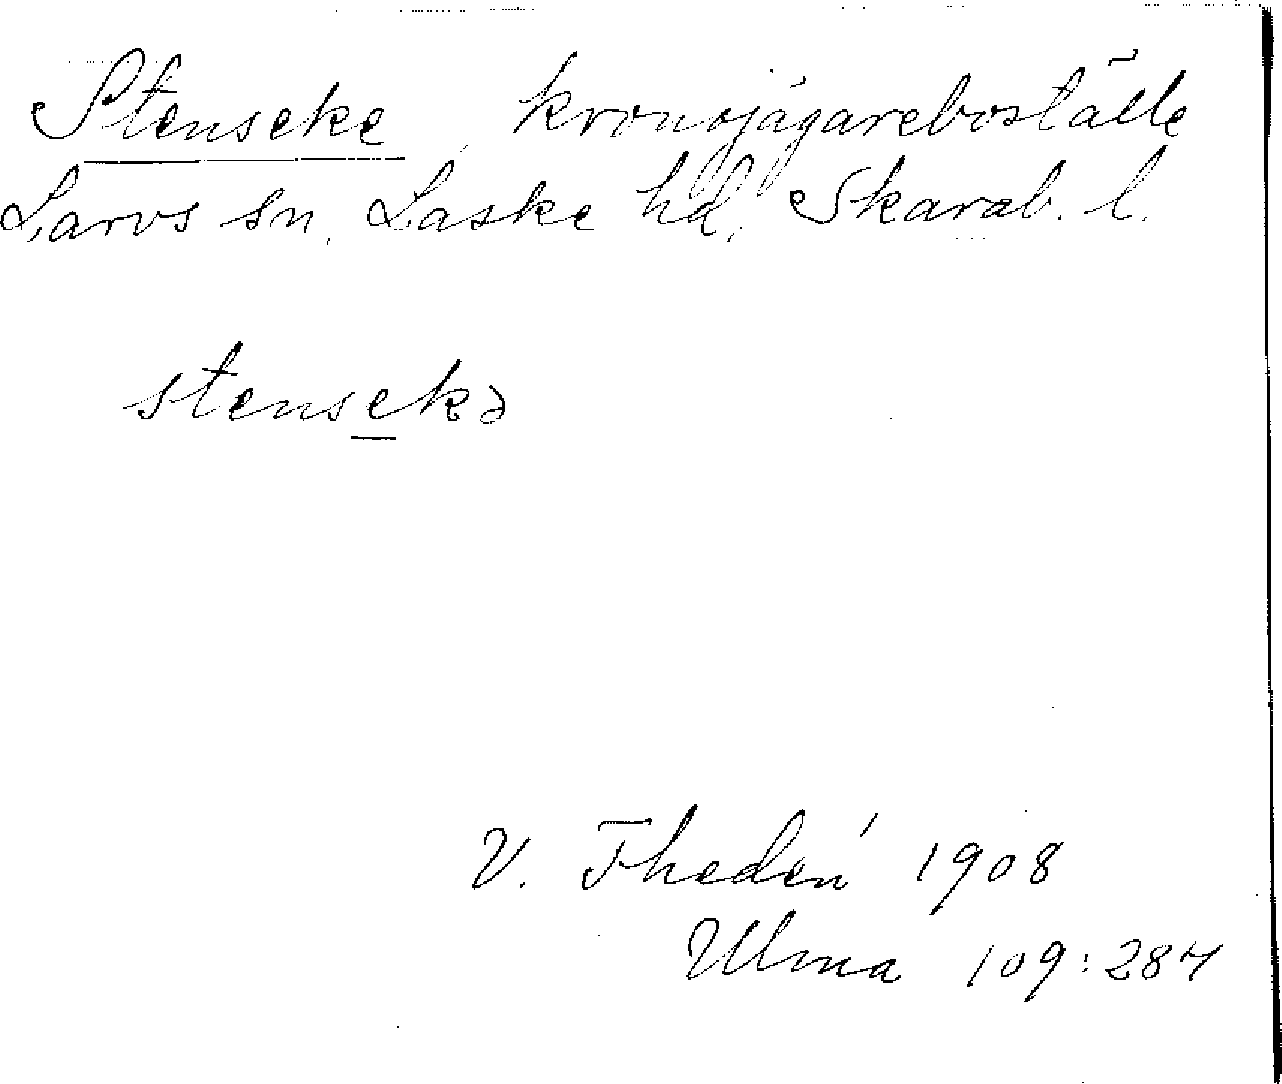 Stenseke, kronojägareboställe
Larvs sn, Laske hd, Skarab. l.
stensekə
V. Thedén 1908
Ulma 109:287